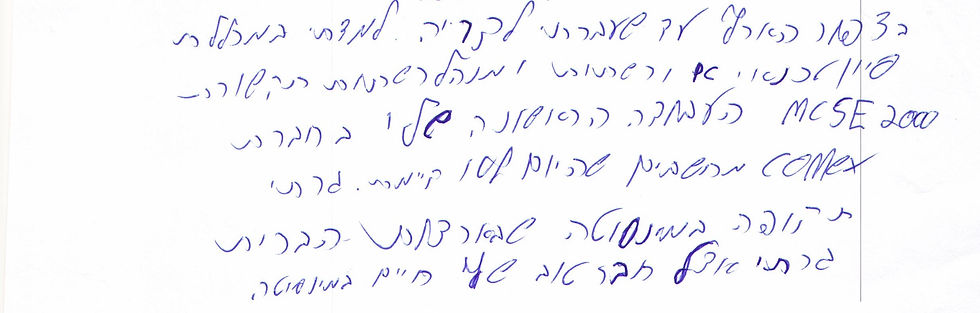 בצפון הארץ עד שעברתי לקריה. למדתי במכללת
סיוון טכנאי pc ורשתות ומנהל רשתות תקשורת
MCSE 2000 העבודה הראשונה שלי בחברת
COMEX מחשבים שהיום לא קיימת. גרתי
תקופה במינסוטה שבארצות הברית
גרתי אצל חבר טוב שלי חיים במינסוטה,